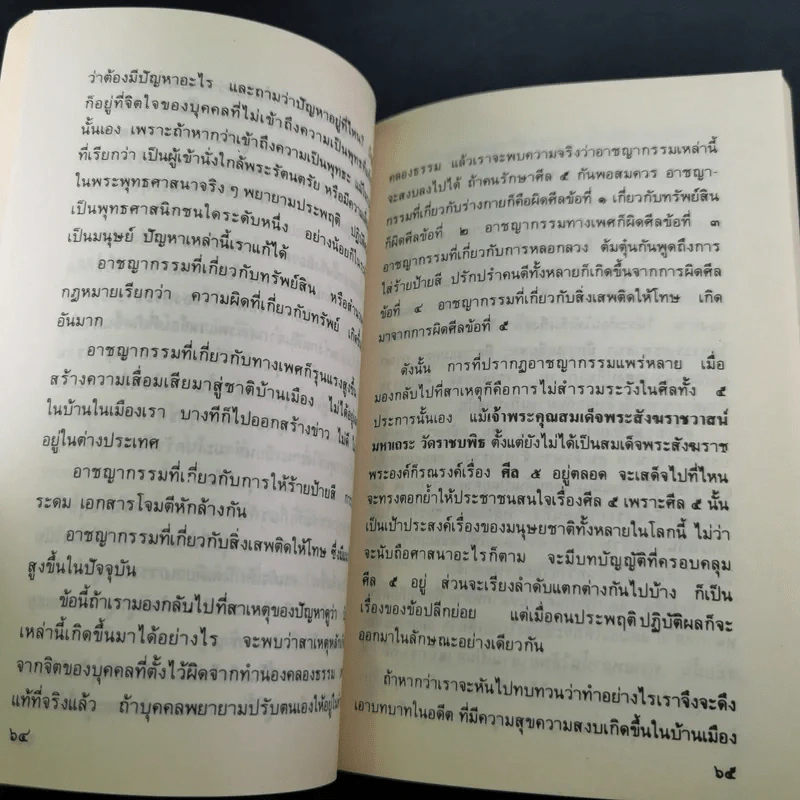 ว่าต้องมีปัญหาอะไร และถามว่าปัญหาอยู่ที่ไหน?
ก็อยู่ที่จิตใจของบุคคลที่ไม่เข้าถึงความเป็นพุทธ
นั้นเอง เพราะถ้าหากว่าเข้าถึงความเป็นพุทธะ
ที่เรียกว่า เป็นผู้เข้านั่งใกล้พระรัตนตรัย หรือมีความ
ในพระพุทธศาสนาจริง ๆ พยายามประพฤติ
เป็นพุทธศาสนิกชนใดระดับหนึ่ง อย่างน้อยก็
เป็นมนุษย์ ปัญหาเหล่านี้เราแก้ได้
อาชญากรรมที่เกี่ยวกับทรัพย์สิน หรือ
กฎหมายเรียกว่า ความผิดที่เกี่ยวกับทรัพย์
อันมาก
อาชญากรรมที่เกี่ยวกับทางเพศก็รุนแรงสูงขึ้น
สร้างความเสื่อมเสียมาสู่ชาติบ้านเมือง ไม่ได้
ในบ้านในเมืองเรา บางทีก็ไปออกสร้างข่าว ไม่ดี
อยู่ในต่างประเทศ
อาชญากรรมที่เกี่ยวกับการให้ร้ายป้ายสี
ระดม เอกสารโจมตีหักล้างกัน
อาชญากรรมที่เกี่ยวกับสิ่งเสพติดให้โทษ
สูงขึ้นในปัจจุบัน
ข้อนี้ถ้าเรามองกลับไปที่สาเหตุของปัญหาดูว่า
เหล่านี้เกิดขึ้นมาได้อย่างไร จะพบว่าสาเหตุ
จากจิตของบุคคลที่ตั้งไว้ผิดจากทำนองคลองธรรม
แท้ที่จริงแล้ว ถ้าบุคคลพยายามปรับตนเองให้อยู่ใน
๖๔
คลองธรรม แล้วเราจะพบความจริงว่าอาชญากรรมเหล่านี้
จะสงบลงไปได้ ถ้าคนรักษาศีล ๕ กันพอสมควร อาชญา-
กรรมที่เกี่ยวกับร่างกายก็คือผิดศีลข้อที่ ๑ เกี่ยวกับทรัพย์สิน
ก็ผิดศีลข้อที่ ๒ อาชญากรรมทางเพศก็ผิดศีลข้อที่ ๓
อาชญากรรมที่เกี่ยวกับการหลอกลวง ต้มตุ๋นกันพูดถึงการ
ใส่ร้ายป้ายสี ปรักปรำคนดีทั้งหลายก็เกิดขึ้นจากการผิดศีล
ข้อที่ ๔ อาชญากรรมที่เกี่ยวกับสิ่งเสพติดให้โทษ เกิด
มาจากการผิดศีลข้อที่ ๕
ดังนั้น การที่ปรากฏอาชญากรรมแพร่หลาย เมื่อ
มองกลับไปที่สาเหตุก็คือการไม่สำรวมระวังในศีลทั้ง ๕
ประการนั้นเอง แม้เจ้าพระคุณสมเด็จพระสังฆราชวาสน์
มหาเถระ วัดราชบพิธ ตั้งแต่ยังไม่ได้เป็นสมเด็จพระสังฆราช
พระองค์ก็รณรงค์เรื่อง ศีล ๕ อยู่ตลอด จะเสด็จไปที่ไหน
จะทรงตอกย้ำให้ประชาชนสนใจเรื่องศีล ๕ เพราะศีล ๕ นั้น
เป็นเป้าประสงค์เรื่องของมนุษยชาติทั้งหลายในโลกนี้ ไม่ว่า
จะนับถือศาสนาอะไรก็ตาม จะมีบทบัญญัติที่ครอบคลุม
ศีล ๕ อยู่ ส่วนจะเรียงลำดับแตกต่างกันไปบ้าง ก็เป็น
เรื่องของข้อปลีกย่อย แต่เมื่อคนประพฤติปฏิบัติผลก็จะ
ออกมาในลักษณะอย่างเดียวกัน
ถ้าหากว่าเราจะหันไปทบทวนว่าทำอย่างไรเราจึงจะดึง
เอาบทบาทในอดีต ที่มีความสุขความสงบเกิดขึ้นในบ้านเมือง
๖๕